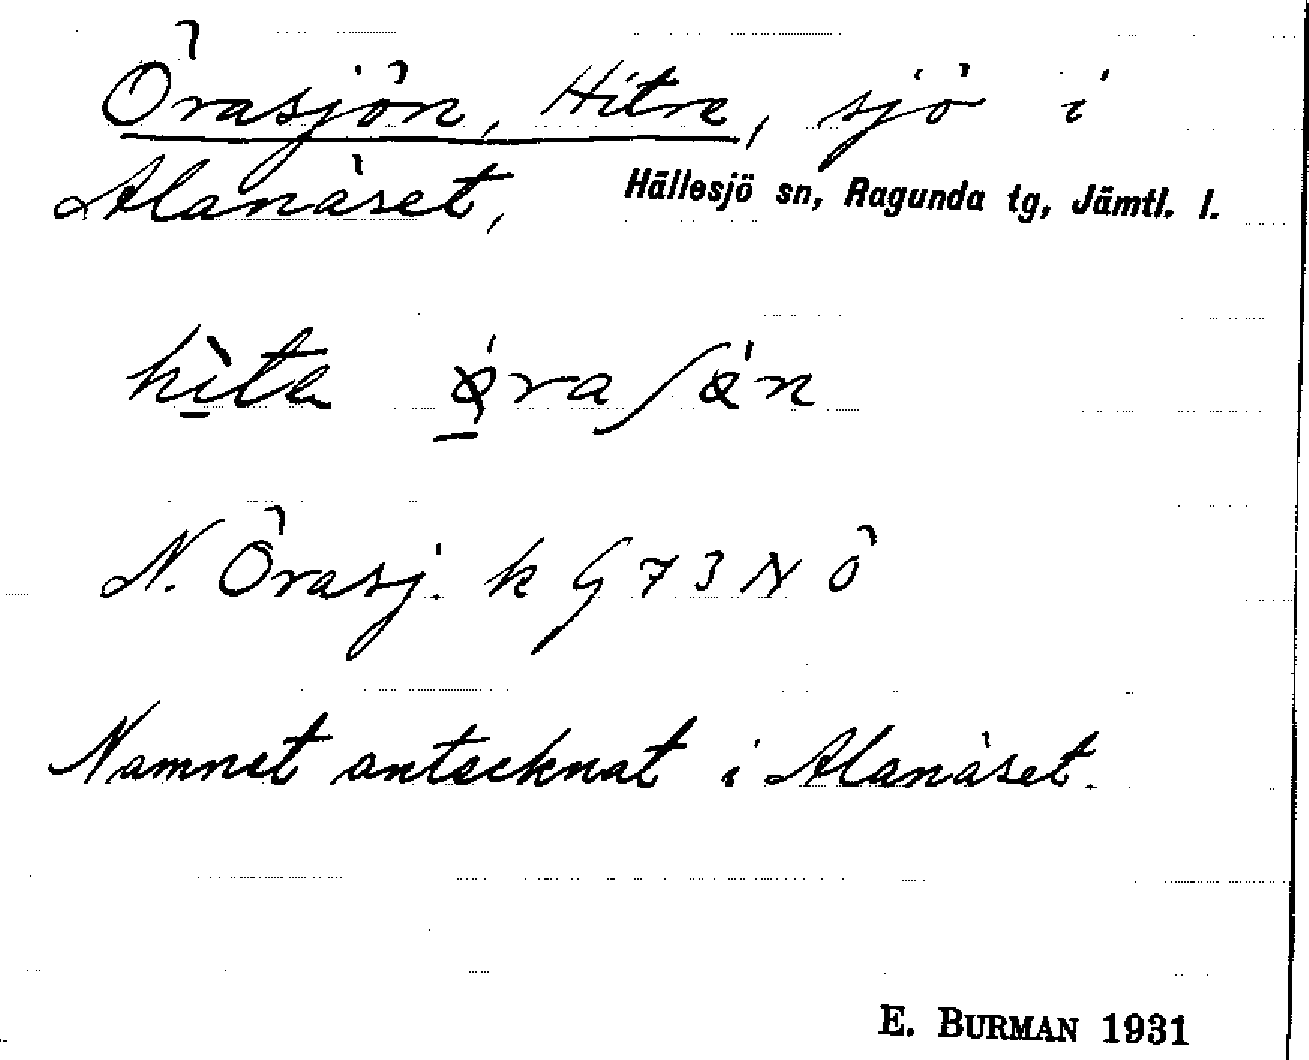 Örasjön, Hitre, sjö i
Alanäset, Hällesjö sn, Ragunda tg, Jämtl. l.
hìta ǿ̨ra ʃǿn
N. Örasj. k G 73 N Ö
Namnet antecknat i Alanäset.
E. BURMAN 1931